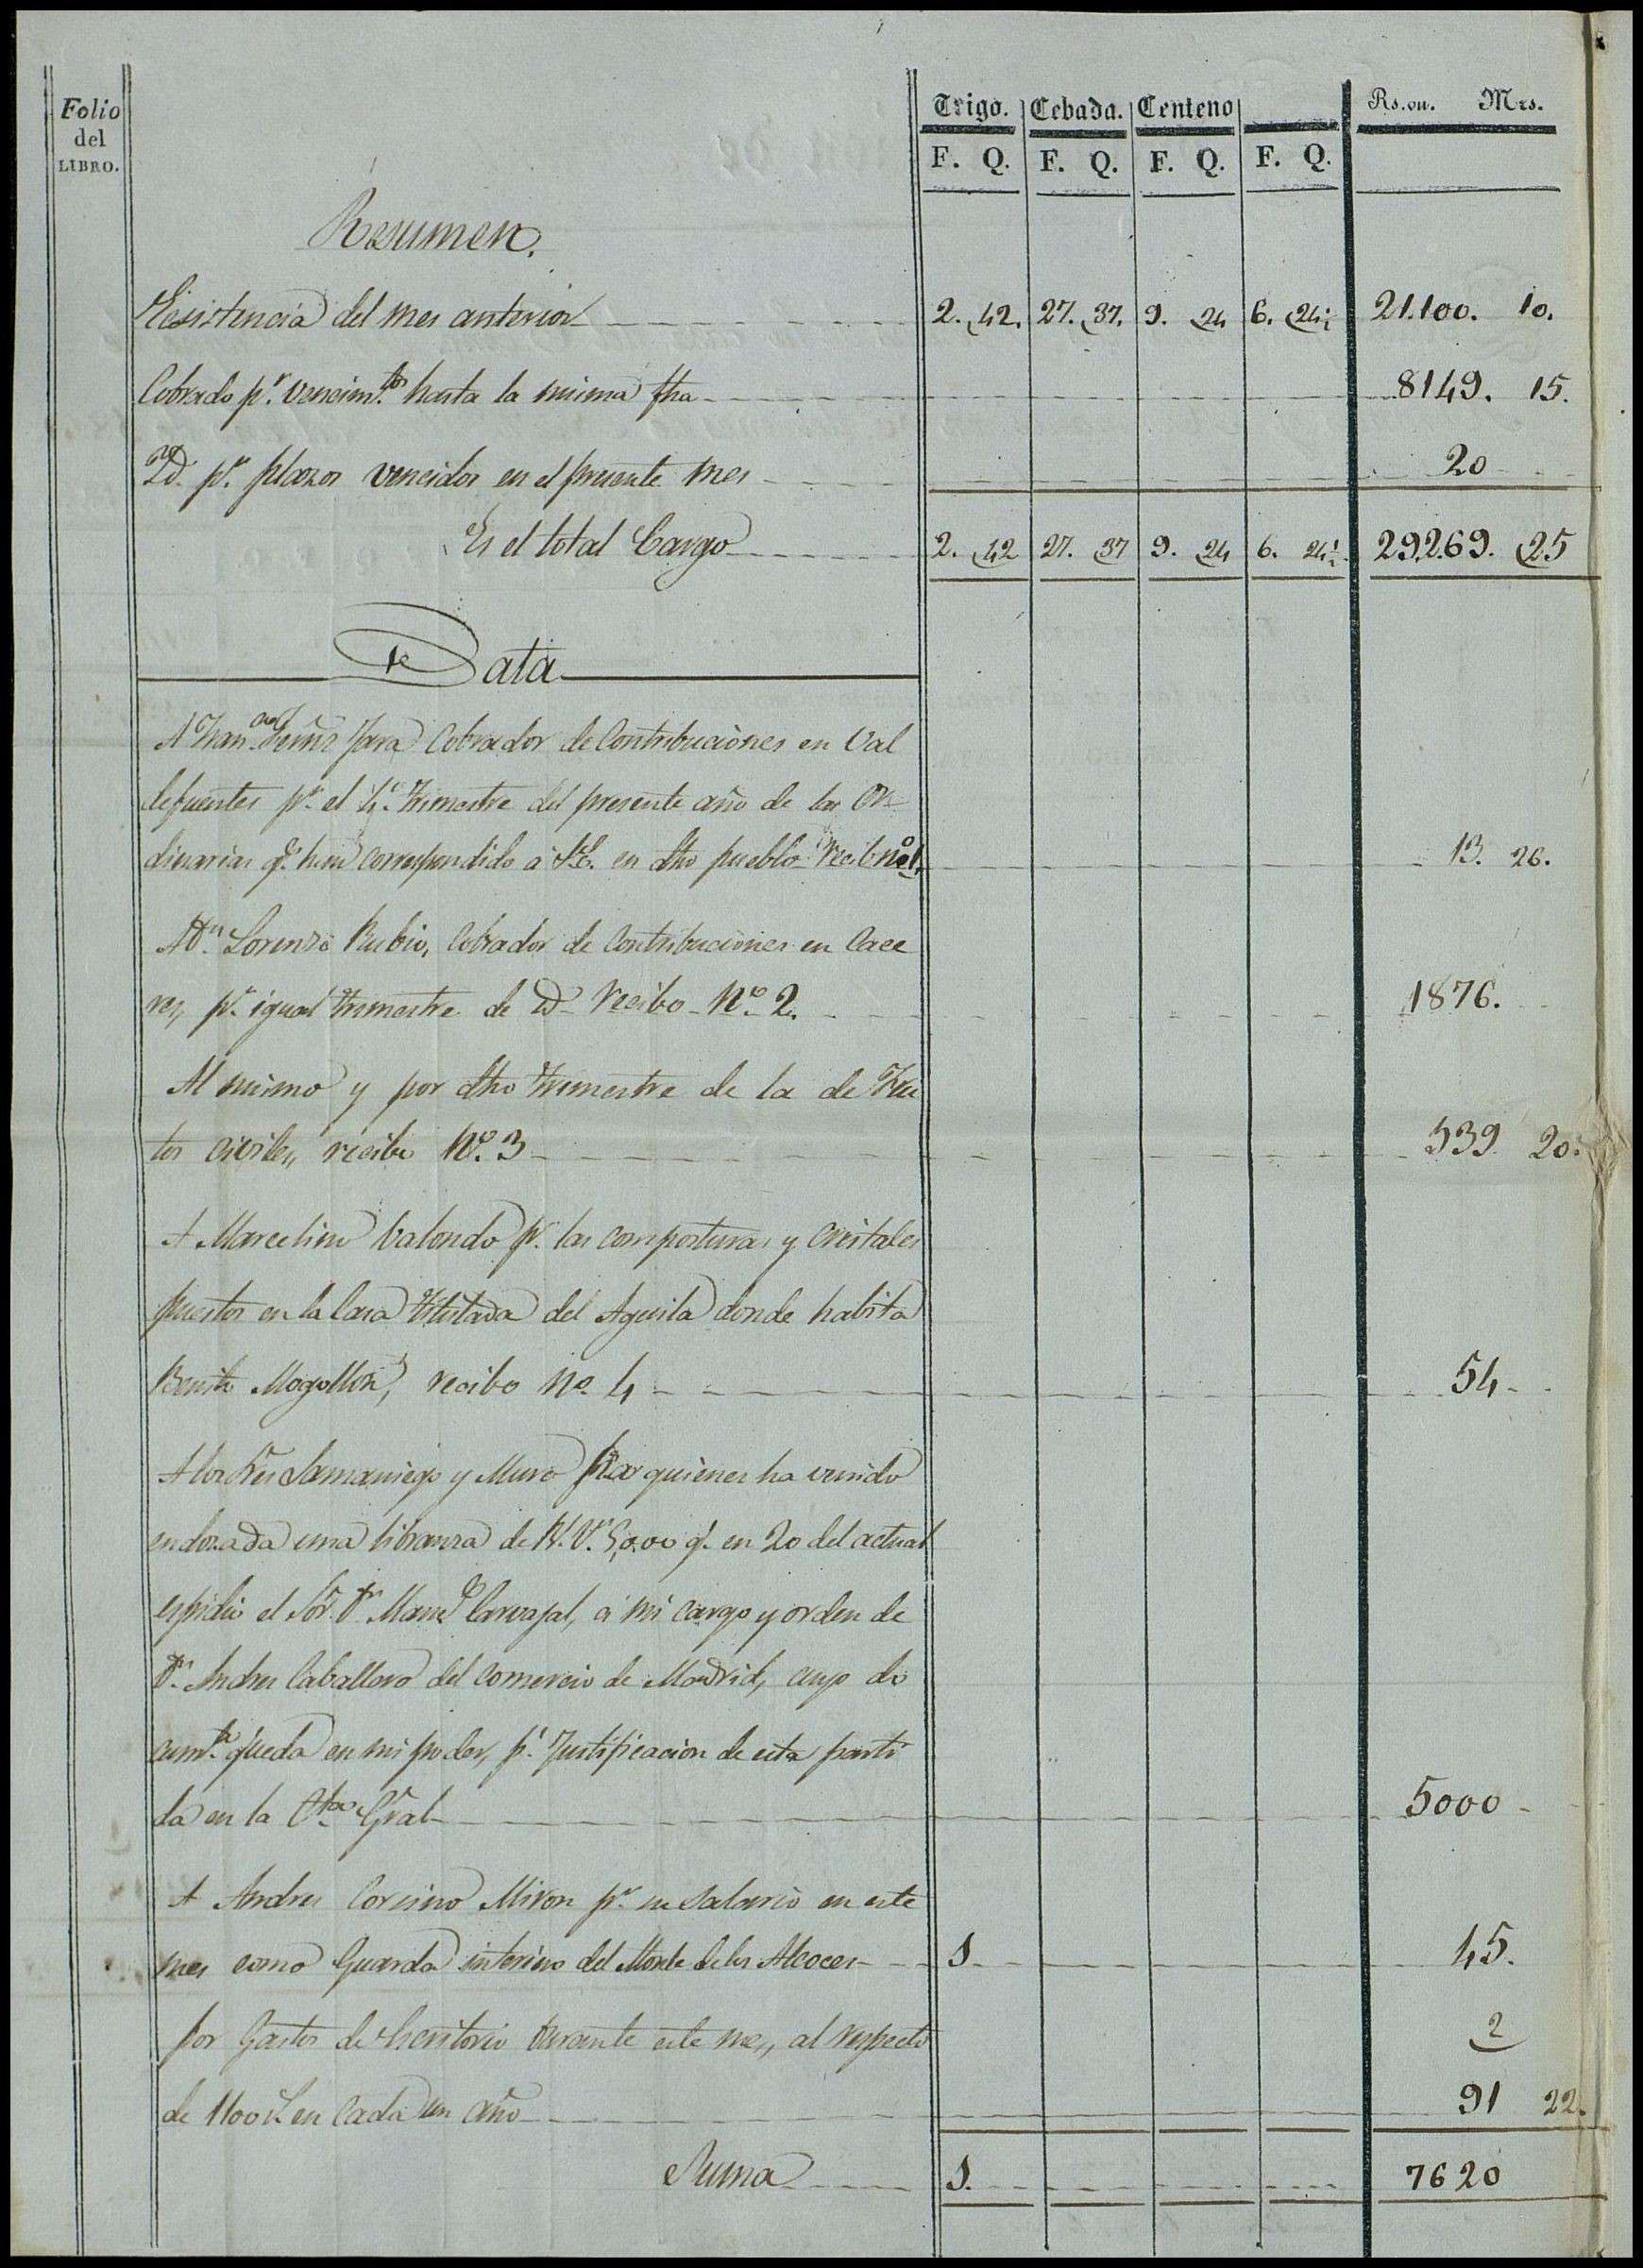 Folio
del
LIBRO.
Trigo. Cebada. Centeno Rs.vn. Mrs.
F. Q. F. Q. F. Q. F. Q.
Resumen.
Existencia del mes anterior 2. 42. 27. 37. 9. 24 6. 24 21.100. 10.
Cobrado pr. vencimtos. hasta la misma fha 8149. 15.
Yd. pr. plazos vencidos en el presente mes 20
Es el total Cargo 2. 42 27. 37 9. 24 6. 24 29.269. 25
Data
A Franco. Jara Cobrador de Contribuciones en Val
defuentes pr. el 4o. trimestre del presente año de las Or
dinarias q. han correspondido a S.E. en dho pueblo recibo no. 1. 13. 26.
A Dn. Lorenzo Rubio, Cobrador de Contribuciones en Cace
res, pr. igual trimestre de Yd. recibo No. 2. 1876.
Al mismo y por dho trimestre de la de Fru
tos civiles, recibo No. 3 539 20.
A Marcelino Valondo pr. las composturas y cristales
puestos en la Casa titulada del Aguila donde habita
Benito Mogollon, recibo No. 4 54
A los Sres Samaniego y Muro por quienes ha venido
endozada una libranza de Rs. Vn. 5,000 q. en 20 del actual
espidio el Sor. Dn. Manl. Carvajal, a mi cargo y orden de
Dn. Andres Caballero del comercio de Madrid, cuyo do
cumto. queda en mi poder, pa. Justificacion de esta parti
da en la Cta. Gral 5000
A Andres Corsino Miron pr. su salario en este
mes como Guarda interino del Monte de los Alcoces 1. 45.
2
por Gastos de Escritorio durante este mes, al respecto
de 1100 rs. en Cada un año 91 22.
Suma 1. 7620